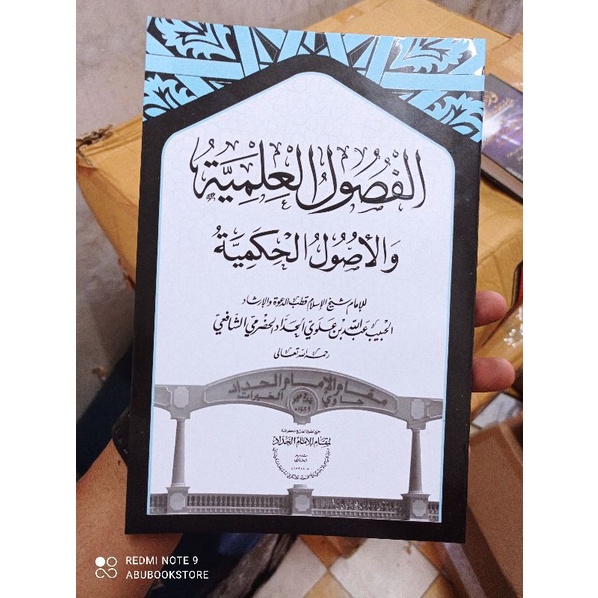 الفُصُولُ العِلْمِيَّةُ
وَالأُصُولُ الحِكَمِيَّةُ
للإمام شيخ الإسلام قطب الدعوة والإرشاد
الحبيب عبد الله بن علوي الحداد الحضرمي الشافعي
رحمه الله تعالى
مقام الإمام الحداد
حاوي الخيرات
مقام الإمام الحداد
REDMI NOTE 9
ABUBOOKSTORE